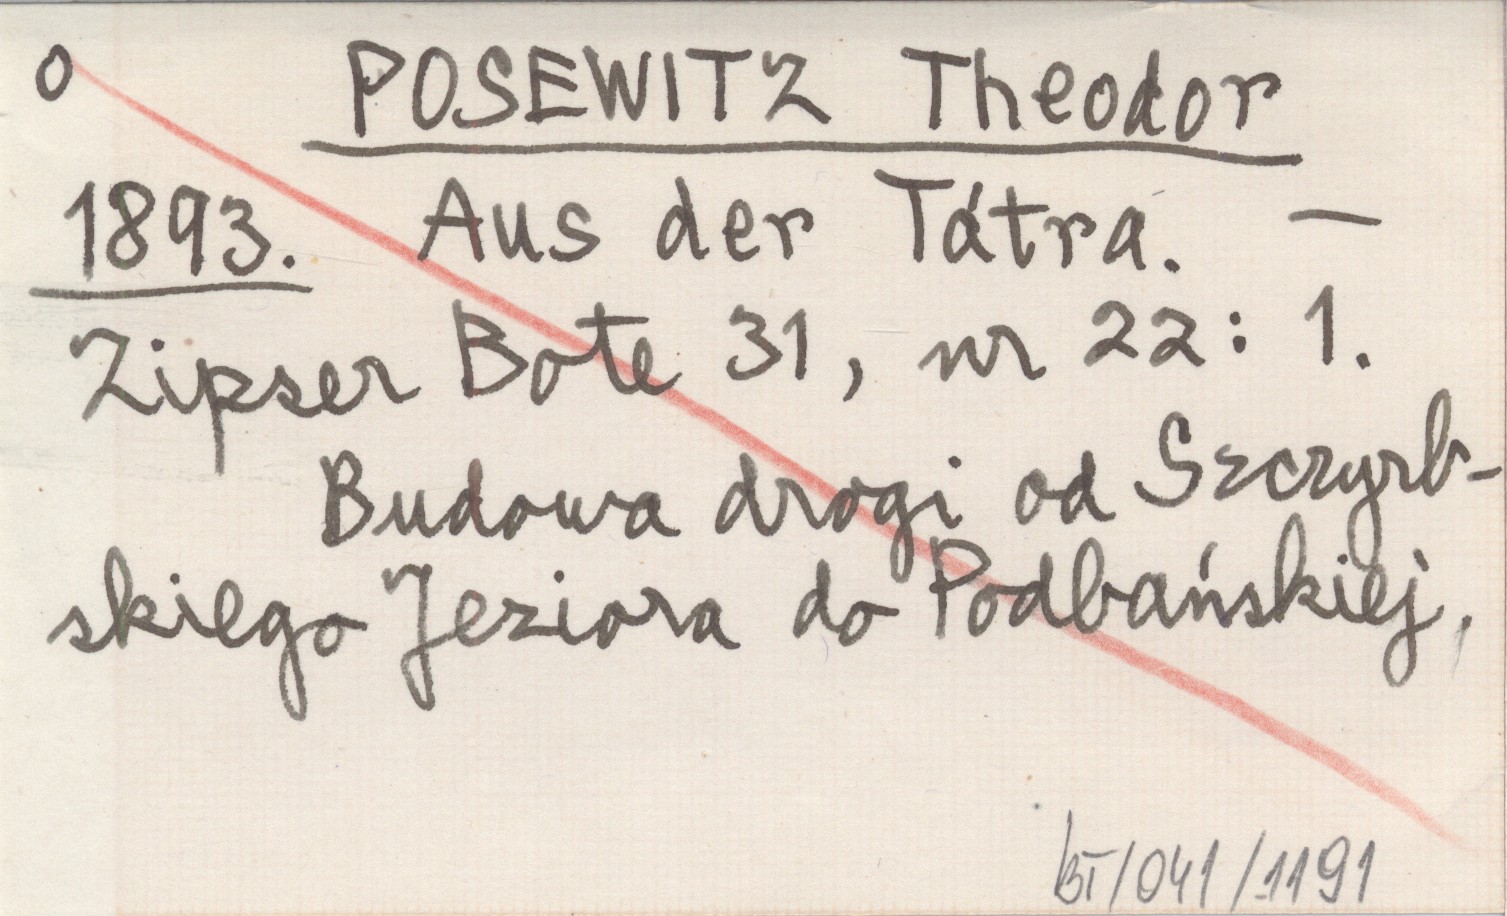 o POSEWITZ Theodor
1893. Aus der Tátra. —
Zipser Bote 31, nr 22: 1.
Budowa drogi od Szczyrb-
skiego Jeziora do Podbańskiej.
BT/041/1191